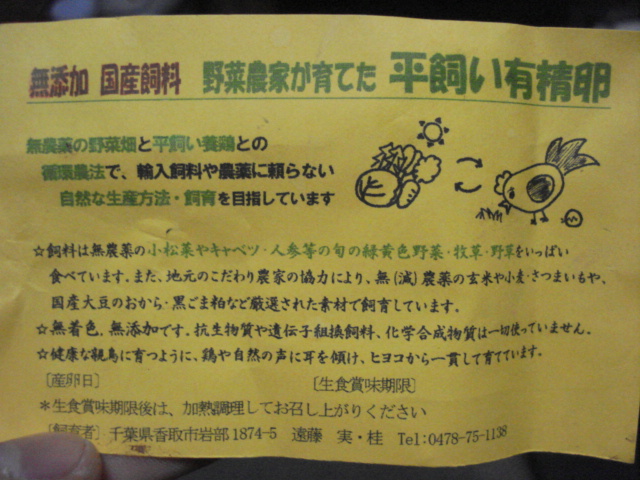 無添加 国産飼料 野菜農家が育てた 平飼い有精卵
無農薬の野菜畑と平飼い養鶏との
循環農法で、輸入飼料や農薬に頼らない
自然な生産方法・飼育を目指しています
☆飼料は無農薬の小松菜やキャベツ・人参等の旬の緑黄色野菜・牧草・野草をいっぱい
食べています。また、地元のこだわり農家の協力により、無(減)農薬の玄米や小麦・さつまいもや、
国産大豆のおから・黒ごま粕など厳選された素材で飼育しています。
☆無着色、無添加です。抗生物質や遺伝子組換飼料、化学合成物質は一切使っていません。
☆健康な親鳥に育つように、鶏や自然の声に耳を傾け、ヒヨコから一貫して育てています。
[産卵日] [生食賞味期限]
*生食賞味期限後は、加熱調理してお召し上がりください
[飼育者] 千葉県香取市岩部1874-5 遠藤 実・桂 Tel:0478-75-1138